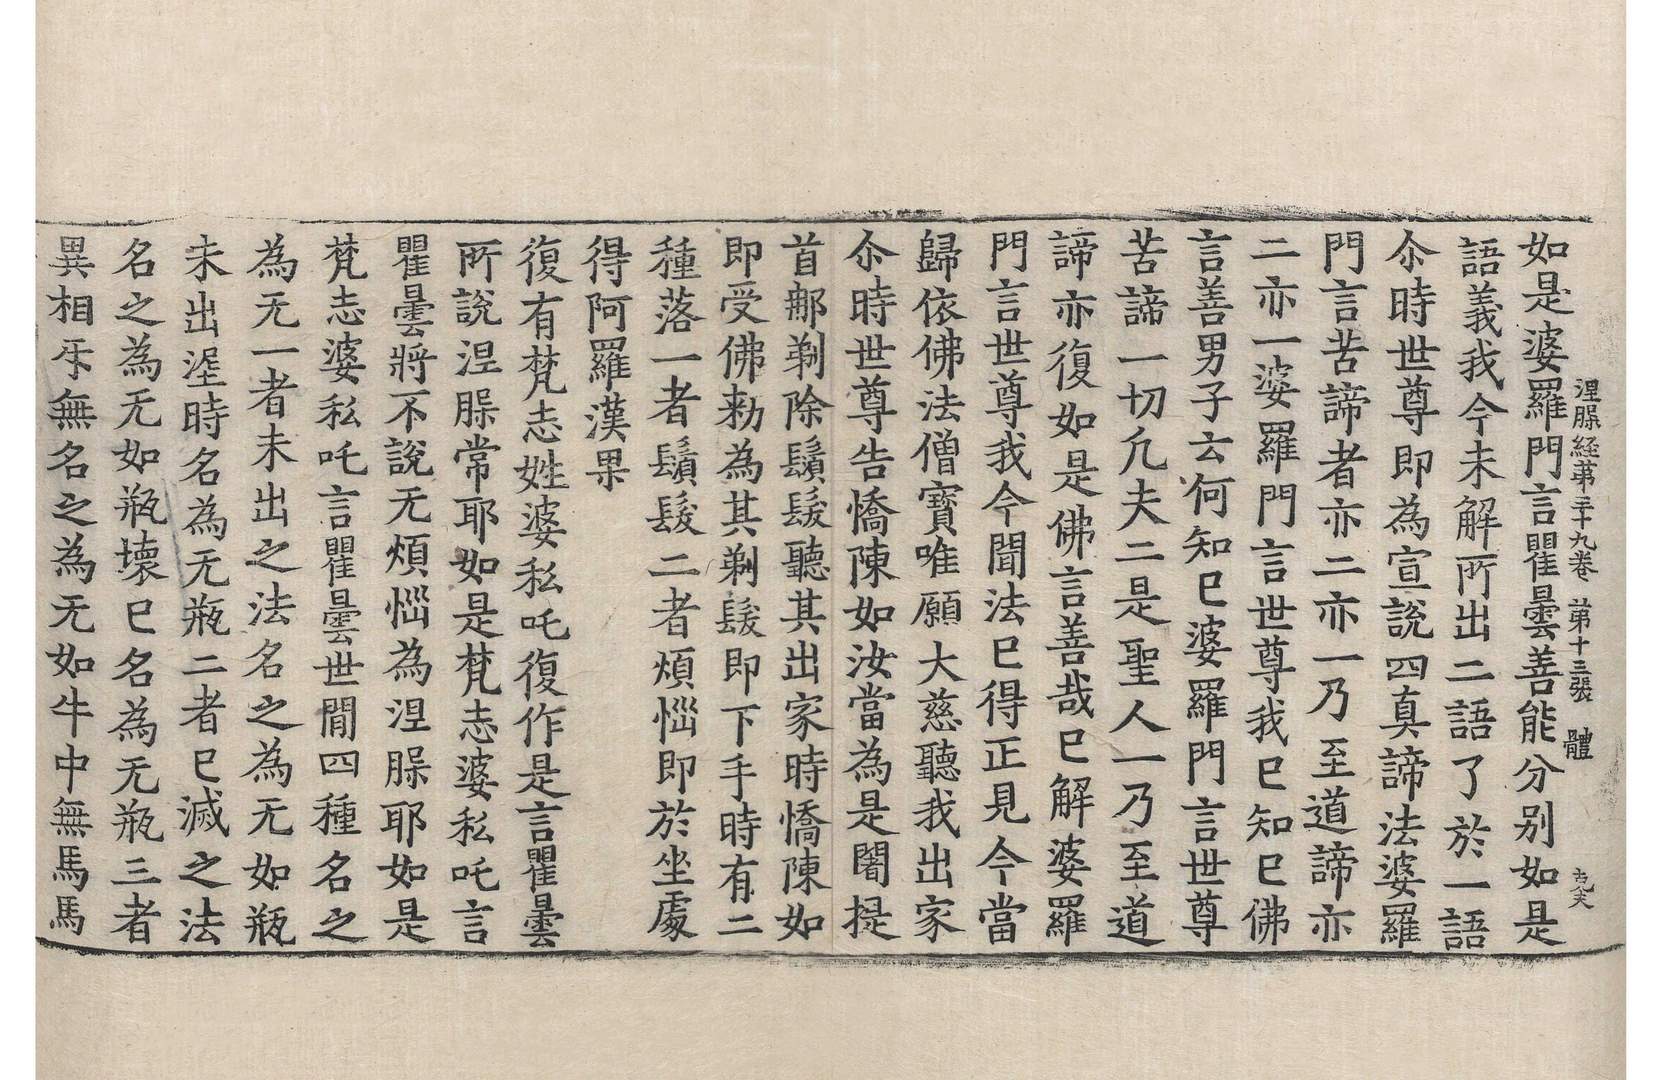 如是婆羅門言瞿曇善能分別如是
涅槃経苐三十九卷 第十三張 體
語義我今未解所出二語了於一語
尒時世尊即為宣說四真諦法婆羅
門言苦諦者亦二亦一乃至道諦亦
二亦一婆羅門言世尊我已知已佛
言善男子云何知已婆羅門言世尊
苦諦一切凢夫二是聖人一乃至道
諦亦復如是佛言善哉已解婆羅
門言世尊我今聞法已得正見今當
歸依佛法僧寶唯願大慈聽我出家
尒時世尊告憍陳如汝當為是闍提
首郍剃除鬚髮聽其出家時憍陳如
即受佛勑為其剃髮即下手時有二
種落一者鬚髮二者煩惱即於坐處
得阿羅漢果
復有梵志姓婆私吒復作是言瞿曇
所說涅槃常耶如是梵志婆私吒言
瞿曇將不說无煩惱為涅槃耶如是
梵志婆私吒言瞿曇世間四種名之
為无一者未出之法名之為无如瓶
未出埿時名為无瓶二者已滅之法
名之為无如瓶壞已名為无瓶三者
異相㸦無名之為无如牛中無馬馬